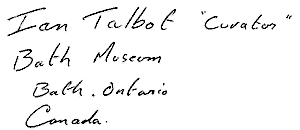 Ian Talbot "Curator"
Bath Museum
Bath. Ontario
Canada.